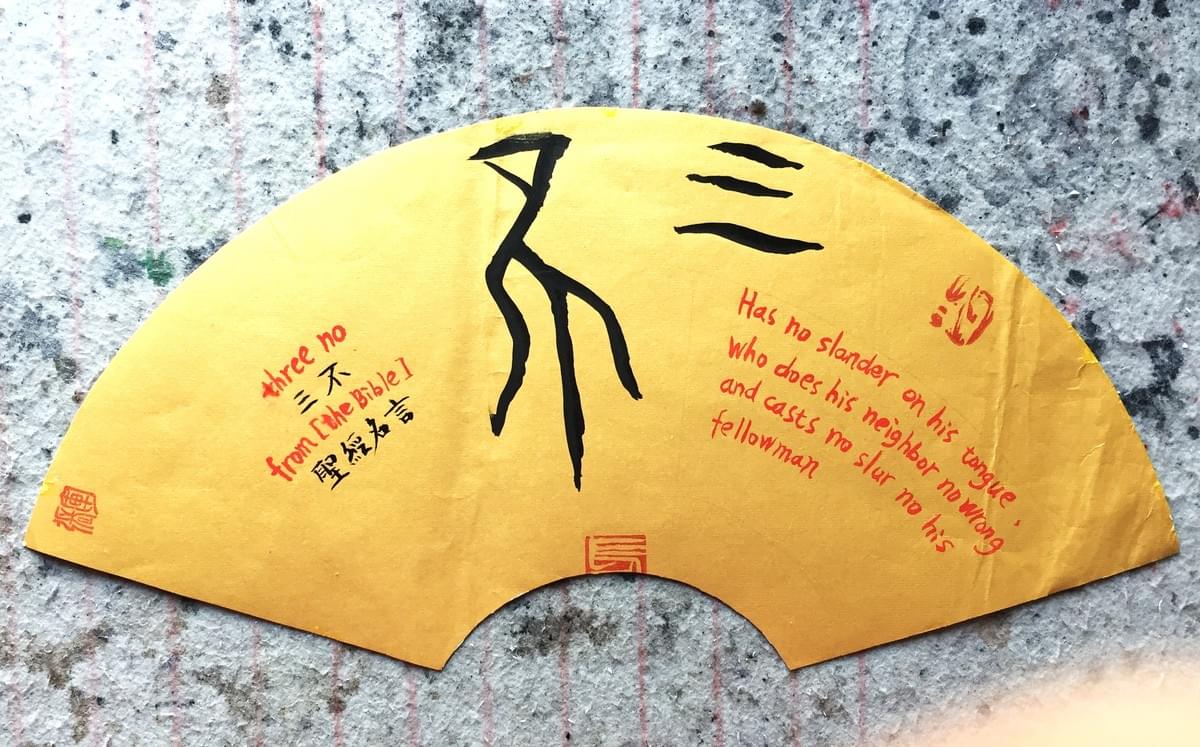 三不
Has no slander on his tongue,
who does his neighbor no wrong
and casts no slur no his
fellowman
three no
三不
from [the Bible]
聖經名言